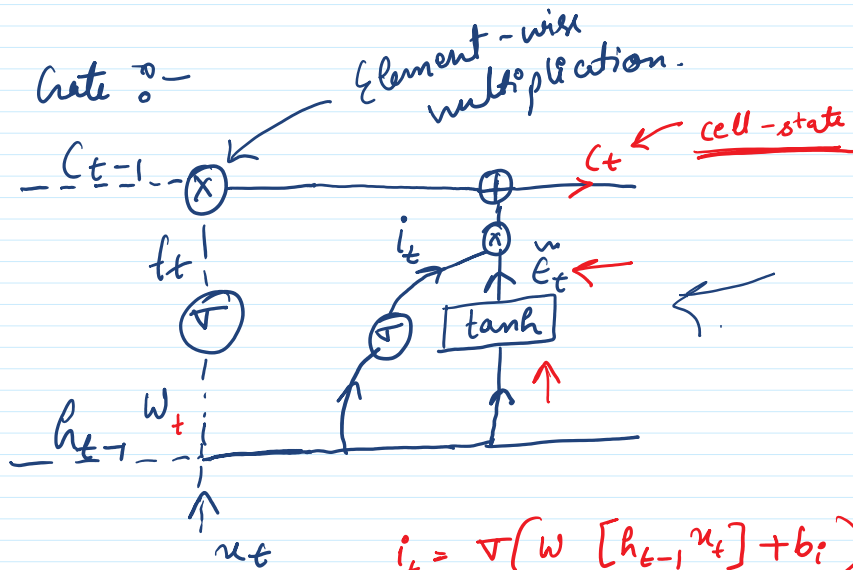 Gate :-
Element-wise
multiplication.
C_{t-1}
×
+
C_t
cell-state
f_t
i_t
×
C̃_t
σ
σ
tanh
W_t
h_{t-1}
x_t
i_t = σ(W [h_{t-1} x_t] + b_i)